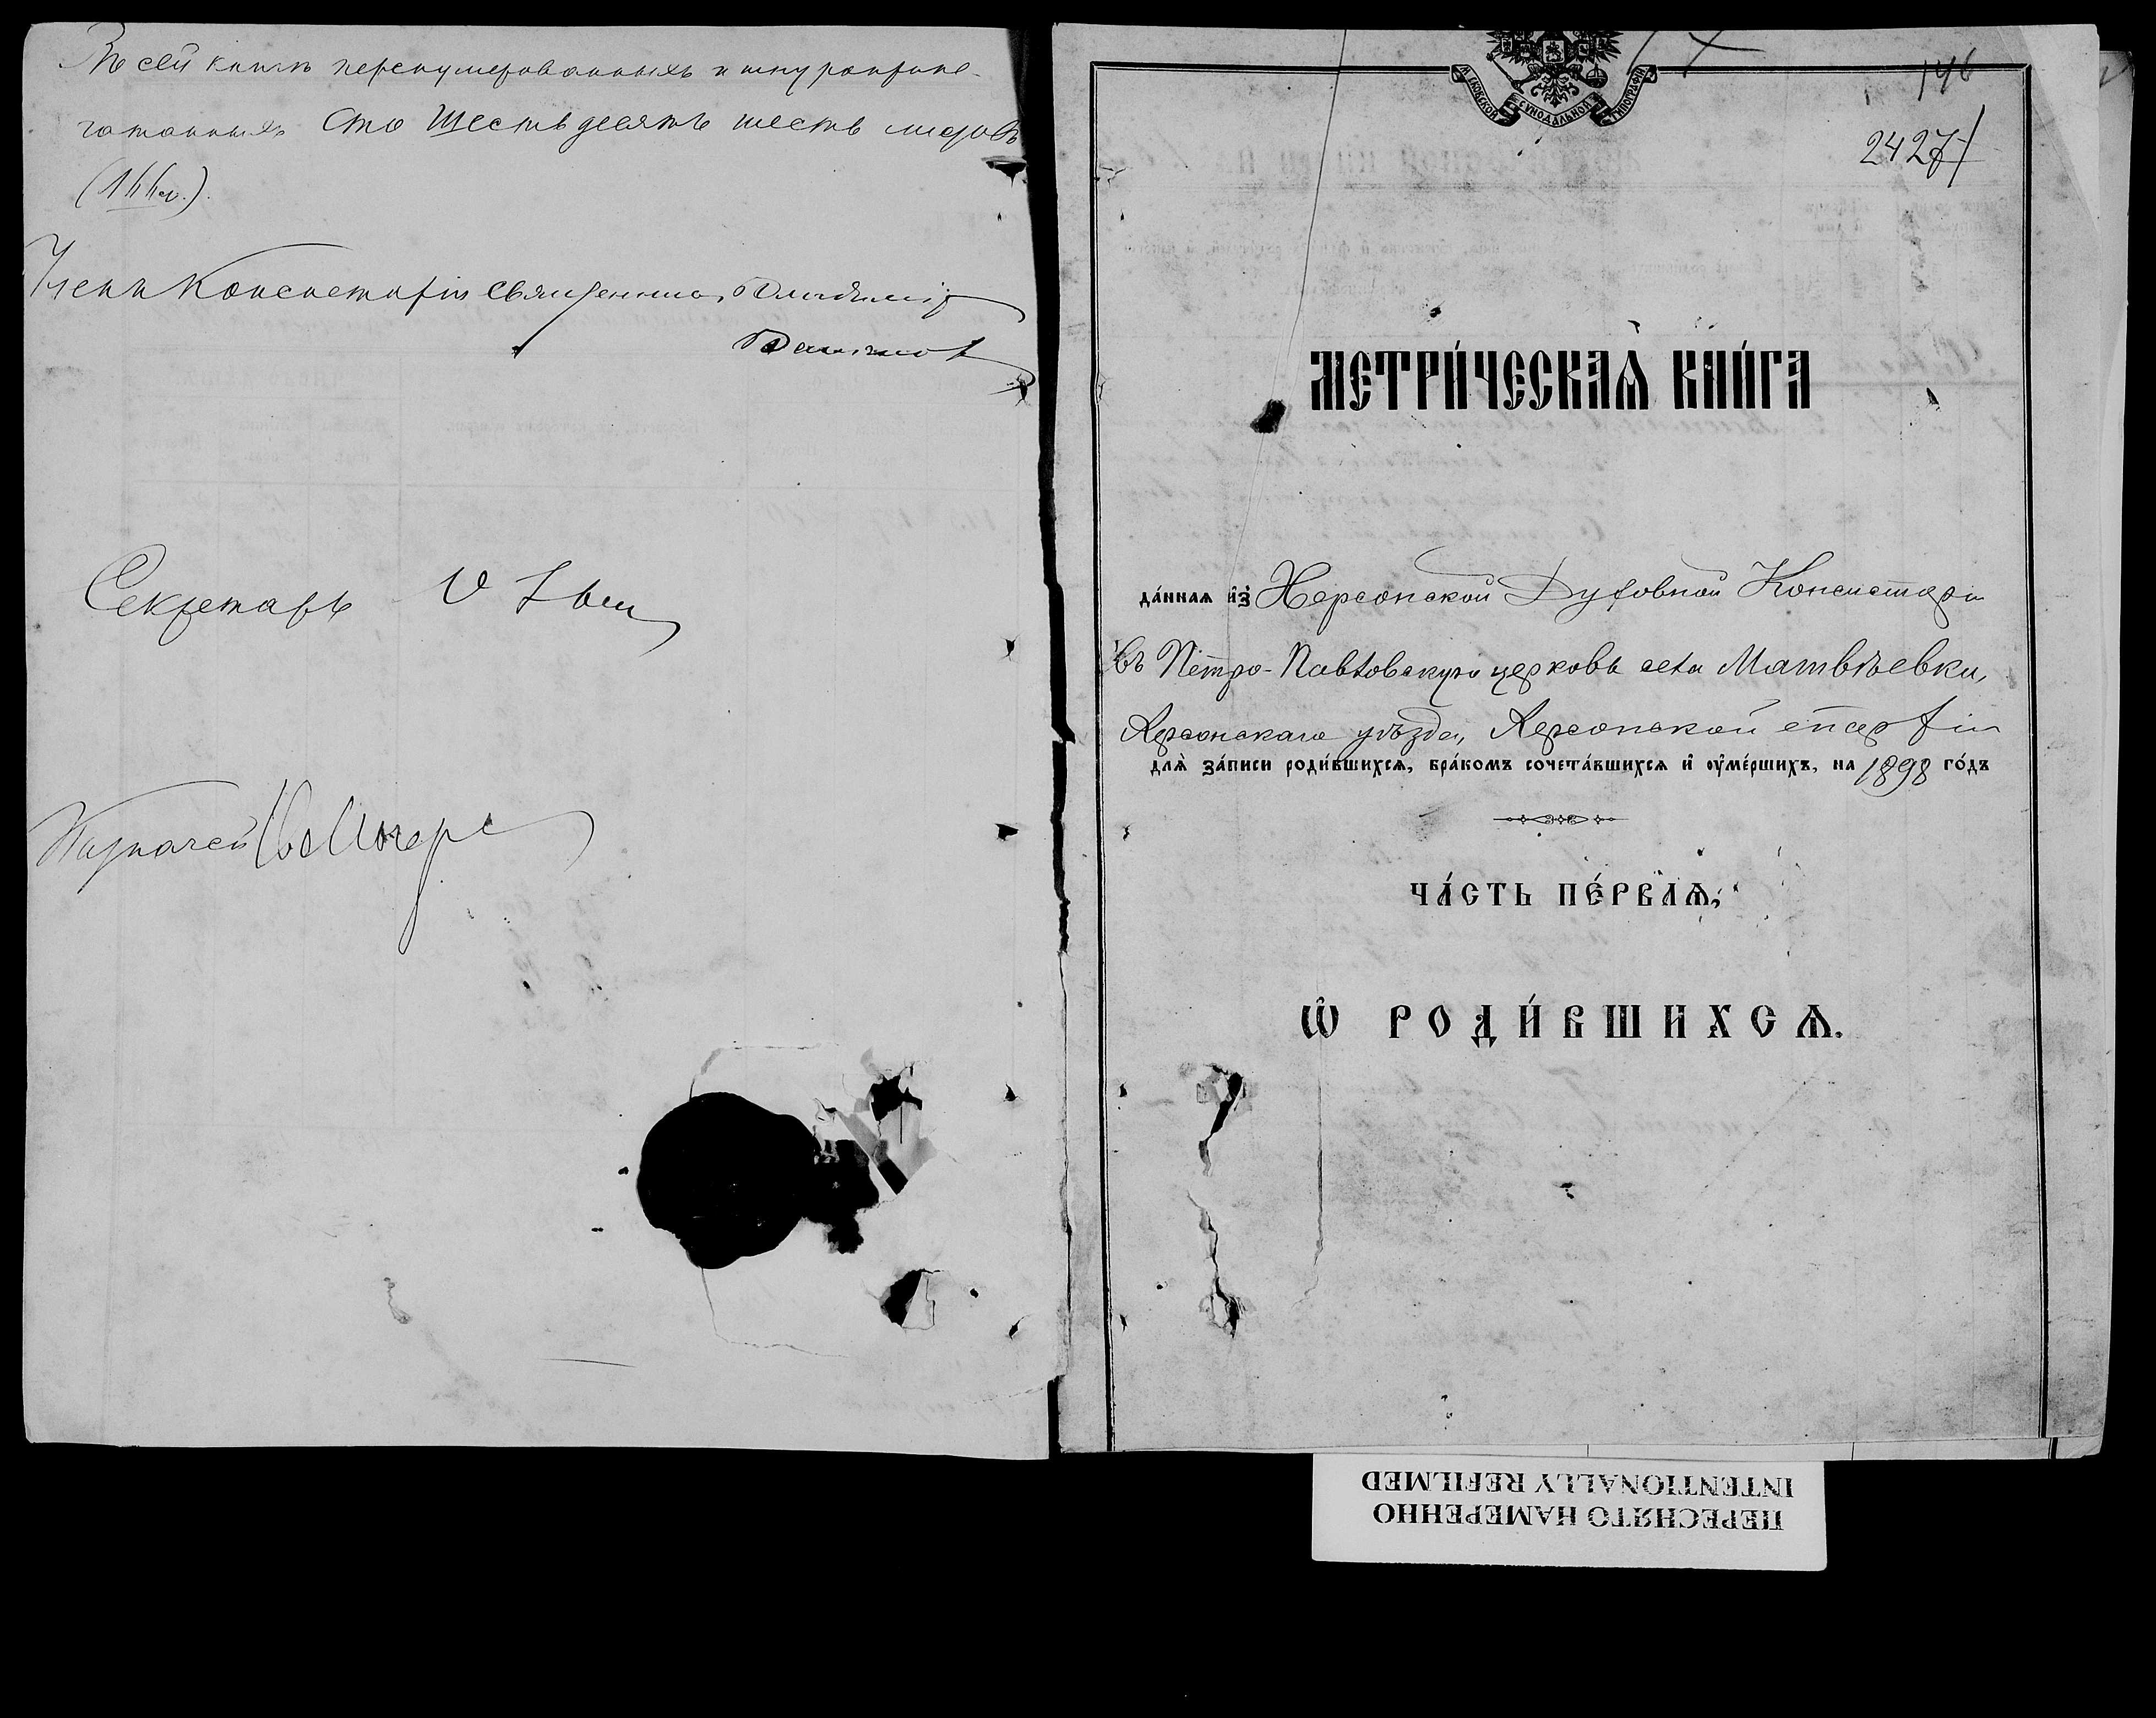 Въ сей книгѣ перенумерованныхъ и шнуроприпе-
чатанныхъ сто шестьдесятъ шесть листовъ
(166 л.).
Членъ Консисторіи Священникъ Владиміръ
Секретарь
Казначей
МОСКОВСКОЙ СѴНОДАЛЬНОЙ ТИПОГРАФІИ
146
2427
МЕТРИ́ЧЕСКАѦ КНИ́ГА
да́нная и҆з̾ Херсонской Духовной Консисторіи
въ Петро-Павловскую церковь села Матвѣевки,
Херсонскаго уѣзда, Херсонской епархіи
для̀ за́писи роди́вшихся, бра́комъ сочета́вшихся и҆ ᲂу҆ме́ршихъ, на 1898 го́дъ
ЧА́СТЬ ПЕ́РВАѦ,
Ѽ РОДИ́ВШИХСѦ.
ПЕРЕСНЯТО НАМЕРЕННО
INTENTIONALLY REFILMED